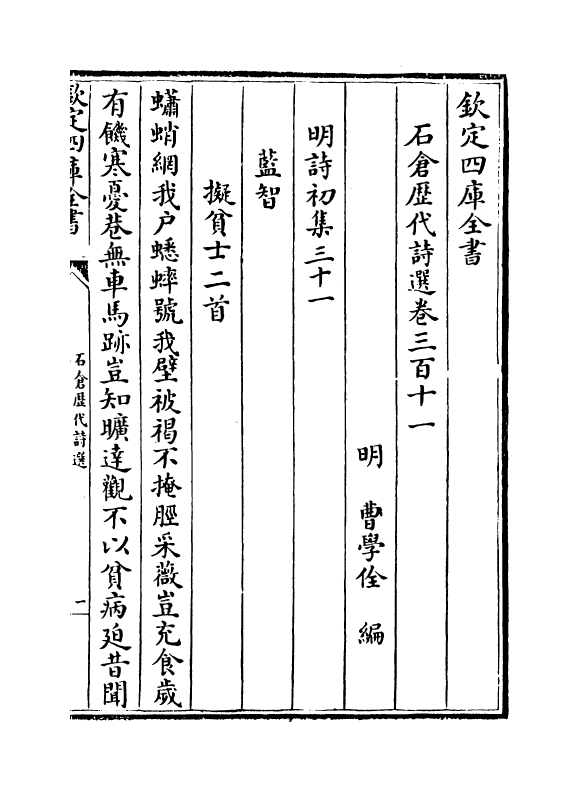 欽定四庫全書
石倉歷代詩選卷三百十一
明 曹學佺 編
明詩初集三十一
藍智
擬貧士二首
蠨蛸網我户蟋蟀號我壁被褐不掩脛采薇豈充食歲
有饑寒憂巷無車馬跡豈知曠達觀不以貧病廹昔聞
欽定四庫全書
石倉歷代詩選
一